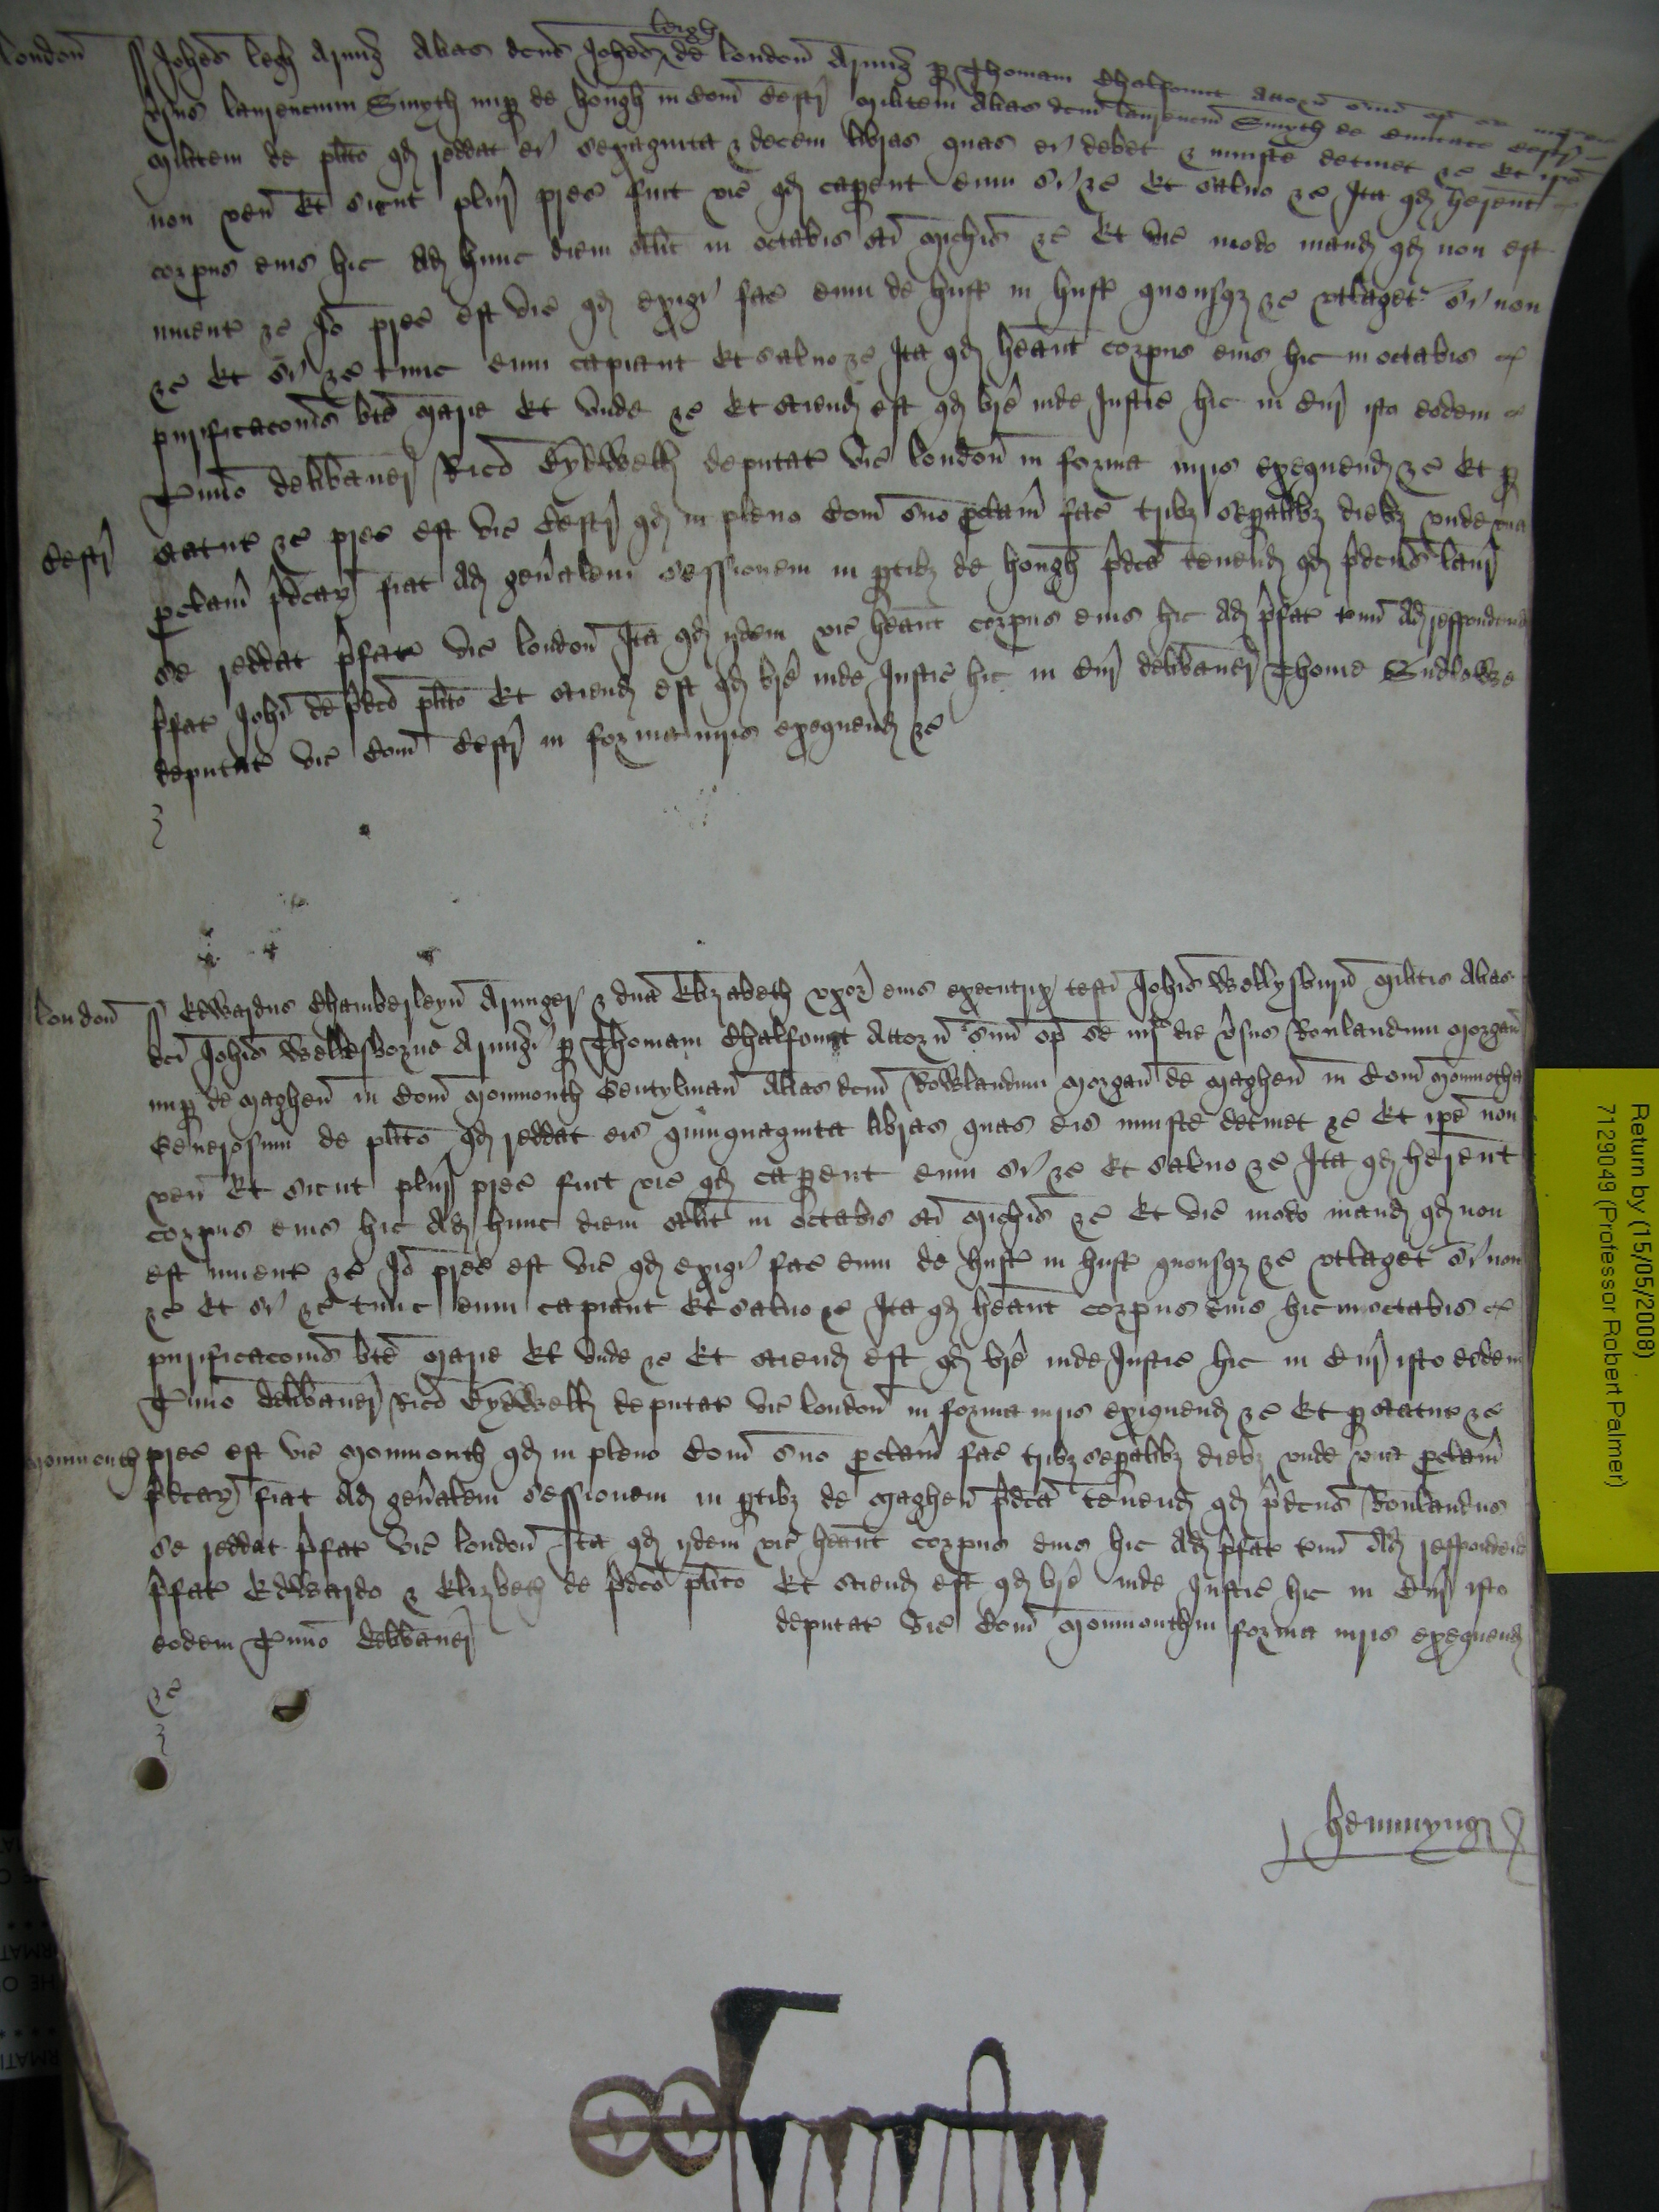 leygh
london Johes legh Armig alias dcus Johes de london Armig p Thomam Chalfount Attorn suu op se
vsus laurencium Smyth nup de hough in Com Cestr militem alias dcm laurencm Smyth de Comitatu Cestr
militem de plito qd reddat ei sexaginta & decem libras quas ei debet & iniuste detinet &c Et ipe
non ven Et sicut plur prec fuit vic qd caperent eum si &c Et saluo &c Ita qd herent
corpus eius hic Ad hunc diem scilt in octabis sci Michis &c Et vic modo mand qd non est
inuent &c Io prec est vic qd exigi fac eum de hust in hust quousqz &c vtlaget si non
&c Et si &c tunc eum capiant Et saluo &c Ita qd heant corpus eius hic in octabis
purificacois bte Marie Et vnde &c Et sciend est qd bre inde Justic hic in Cur isto eodem
Tmino delibauer Rico Eydwell deputat vic london in forma iuris exequend &c Et p
Cestr statut &c prec est vic Cestr qd in pleno Com suo pclam fac tribz sepalibz diebz vnde vna
pclam pdcar fiat Ad genalem sessionem in ptibz de hough pdca tenend qd pdcus laur
se reddat pfat vic london Ita qd ijdem vic heant corpus eius hic Ad pfat tmu Ad respondend
pfat Johi de pdco plito Et sciend est qd bre inde Justic hic in Cur delibauer Thome Sudlowe
deputat vic Com Cestr in forma iuris exequend &c
london Edwardus Chamberleyn Armiger & dna Elizabeth vxor eius executrix testi Johis Wellysburn militis alias
dci Johis Wellesborne Armigi p Thomam Chalfount Attorn suu op se iiij die vsus Roulandum Morgan
nup de Maghen in Com Monmouth Gentylman alias dcm Rowlandum Morgan de Maghen in Com Monmoth
Generosum de plito qd reddat eis quinquaginta libras quas eis iniuste detinet &c Et ipe non
ven Et sicut plur prec fuit vic qd caperent eum si &c Et saluo &c Ita qd herent
corpus eius hic Ad hunc diem scilt in octabis sci Michis &c Et vic modo mand qd non
est inuent &c Io prec est vic qd exigi fac eum de hust in hust quousqz &c vtlaget si non
&c Et si &c tunc eum capiant Et saluo &c Ita qd heant corpus eius hic in octabis
purificacois bte Marie Et vnde &c Et sciend est qd bre inde Justic hic in Cur isto eodem
Tmino delibauer Rico Eydwell deputat vic london in forma iuris exequend &c Et p statut &c
Monmouth prec est vic Monmouth qd in pleno Com suo pclam fac tribz sepalibz diebz vnde vna pclam
pdcar fiat Ad genalem sessionem in ptibz de Maghen pdca tenend qd pdcus Roulandus
se reddat pfat vic london Ita qd ijdem vic heant corpus eius hic Ad pfat tmu Ad respondend
pfat Edwardo & Elizbeth de pdco plito Et sciend est qd bre inde Justic hic in Cur isto
eodem Tmino delibauer deputat vic Com Monmouth in forma iuris exequend
&c
hemmyng
Return by (15/05/2008)
7129049 (Professor Robert Palmer)